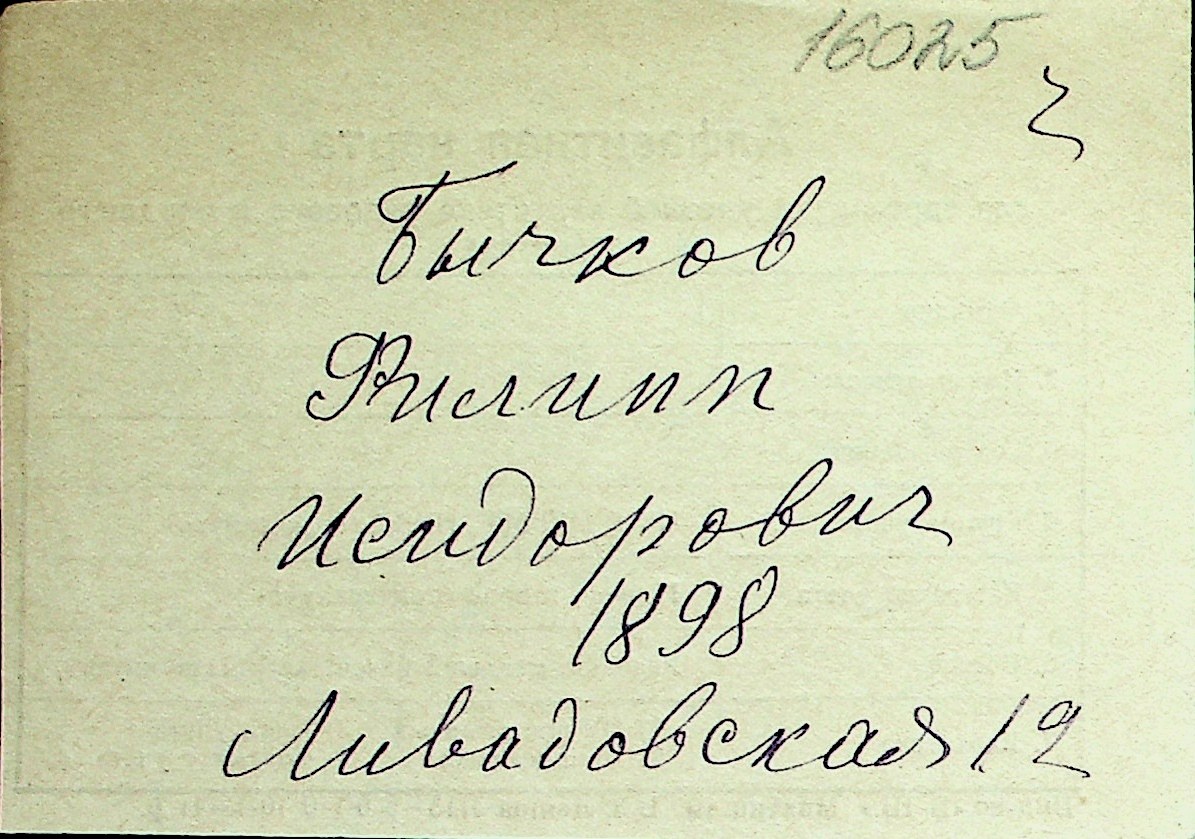 16025
Бычков
Филипп
Исидорович
1898
Ливадовская 12